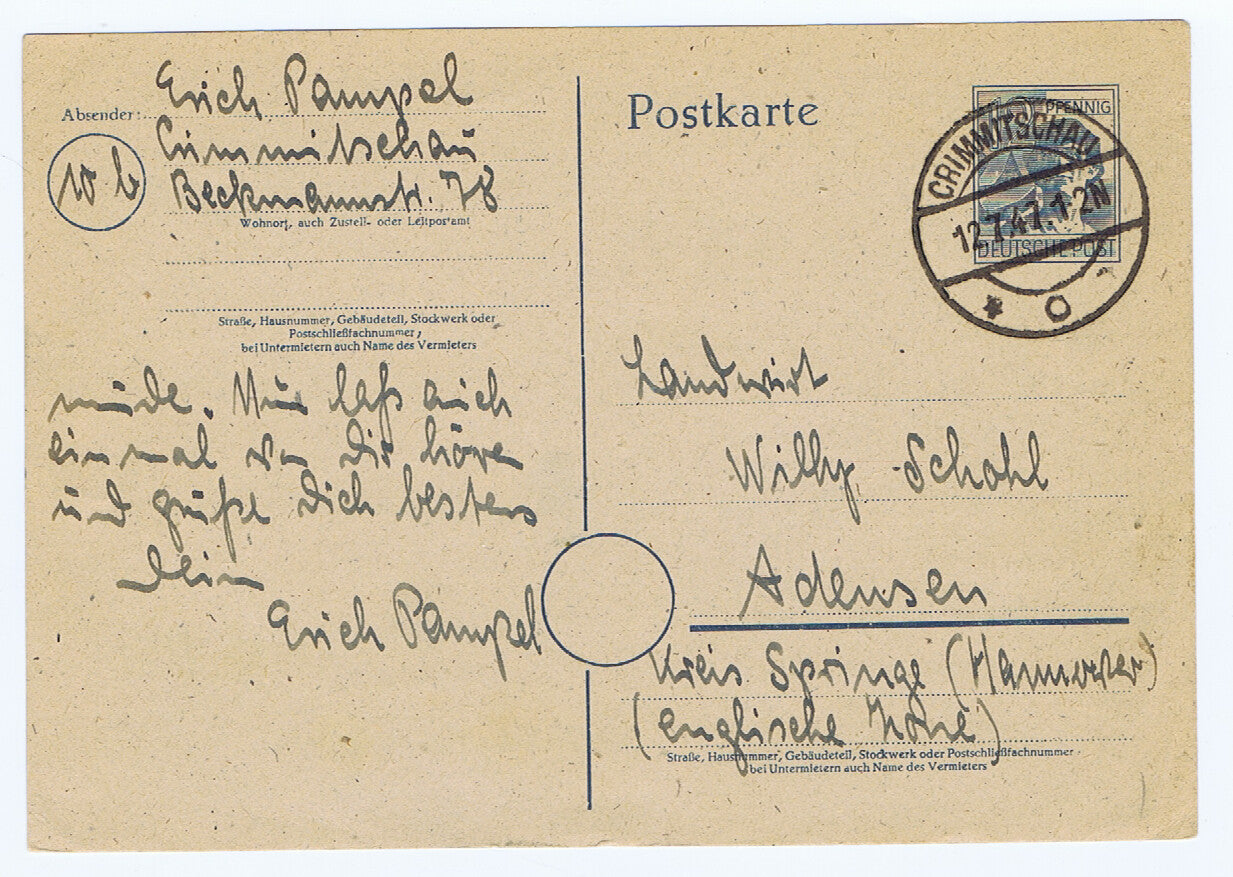 Absender: Erich Pampel
Crimmitschau
10 b
Beckmannstr. 78
Wohnort, auch Zustell- oder Leitpostamt
Straße, Hausnummer, Gebäudeteil, Stockwerk oder
Postschließfachnummer,
bei Untermietern auch Name des Vermieters
müde. Nun laß auch
einmal von Dir hören
und grüße Dich bestens
Dein
Erich Pampel
Postkarte
PFENNIG
DEUTSCHE POST
CRIMMITSCHAU
12.7.47.1-2N
* o
Landwirt
Willy Schohl
Adensen
Kreis Springe (Hannover)
(englische Zone)
Straße, Hausnummer, Gebäudeteil, Stockwerk oder Postschließfachnummer
bei Untermietern auch Name des Vermieters